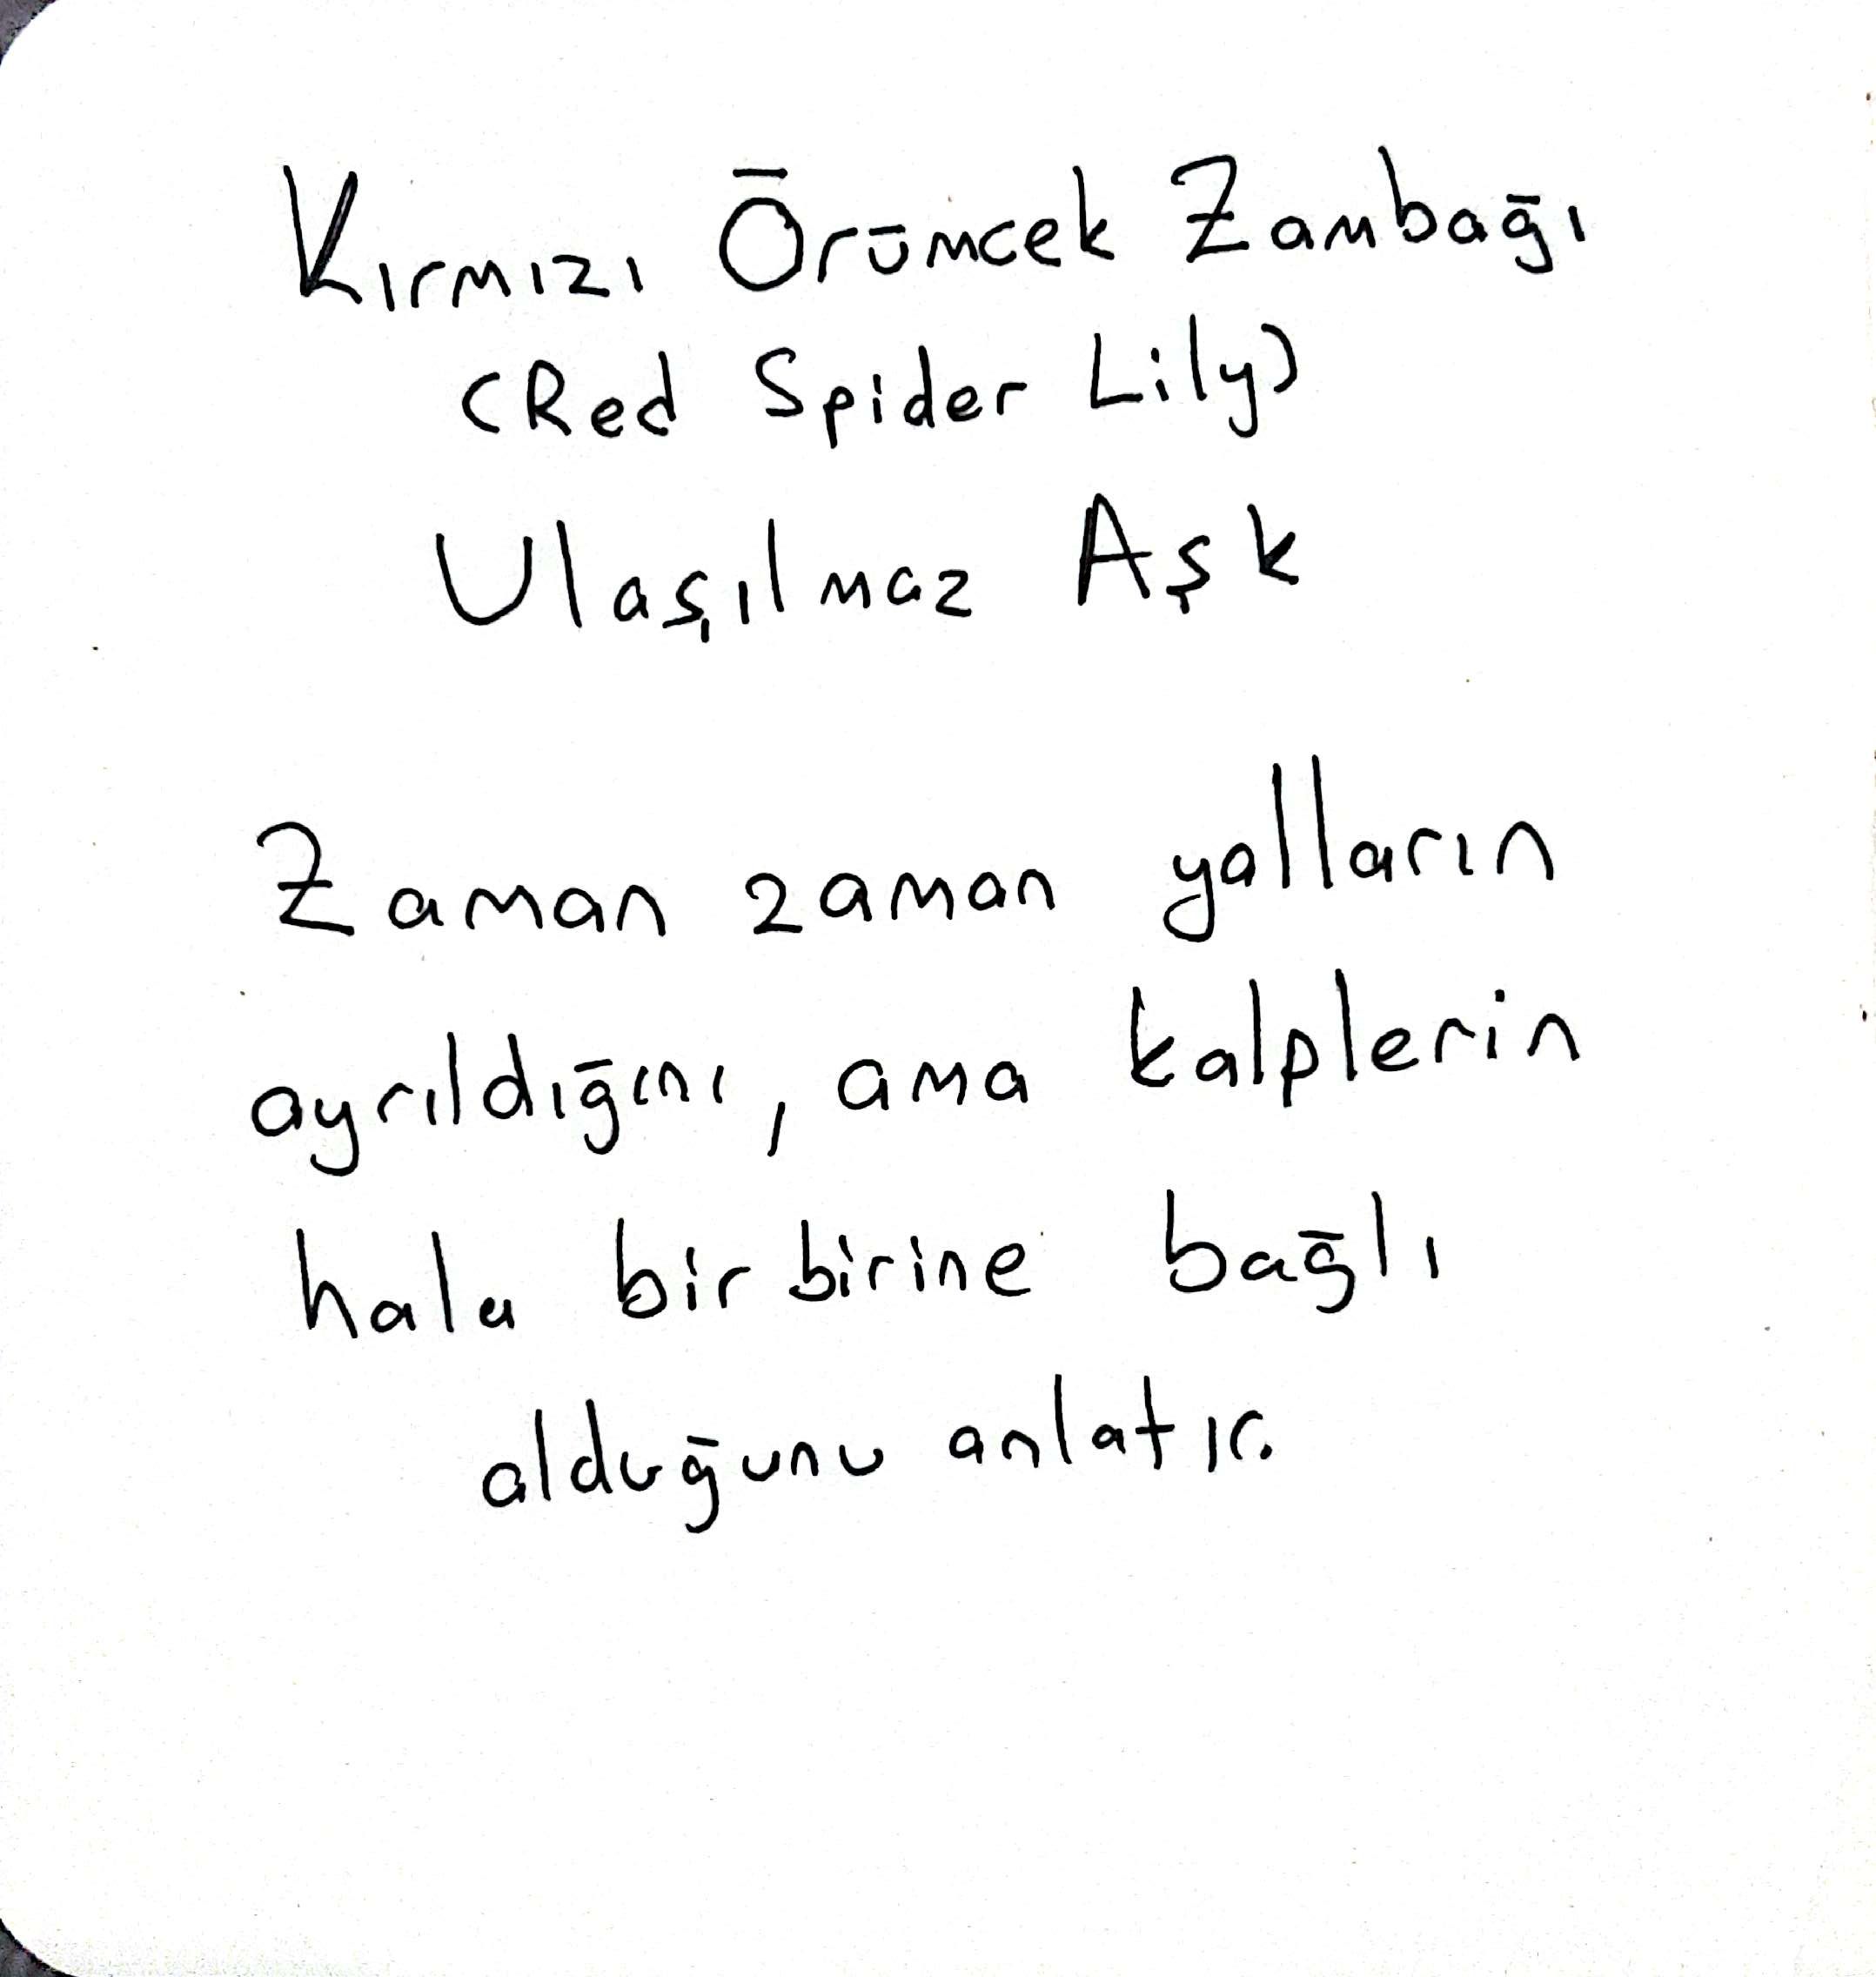 Kırmızı Örümcek Zambağı
(Red Spider Lily)
Ulaşılmaz Aşk
Zaman zaman yolların
ayrıldığını, ama kalplerin
hala birbirine bağlı
olduğunu anlatır.